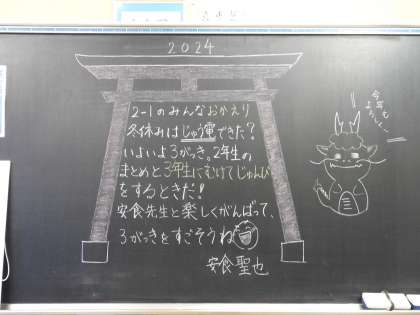 2024
2-1のみんなおかえり
冬休みはじゅう電できた?
いよいよ3がっき。2年生の
まとめと3年生にむけてじゅんび
をするときだ!
安食先生と楽しくがんばって、
3がっきをすごそうね
安食聖也
今年も
よろしく〜